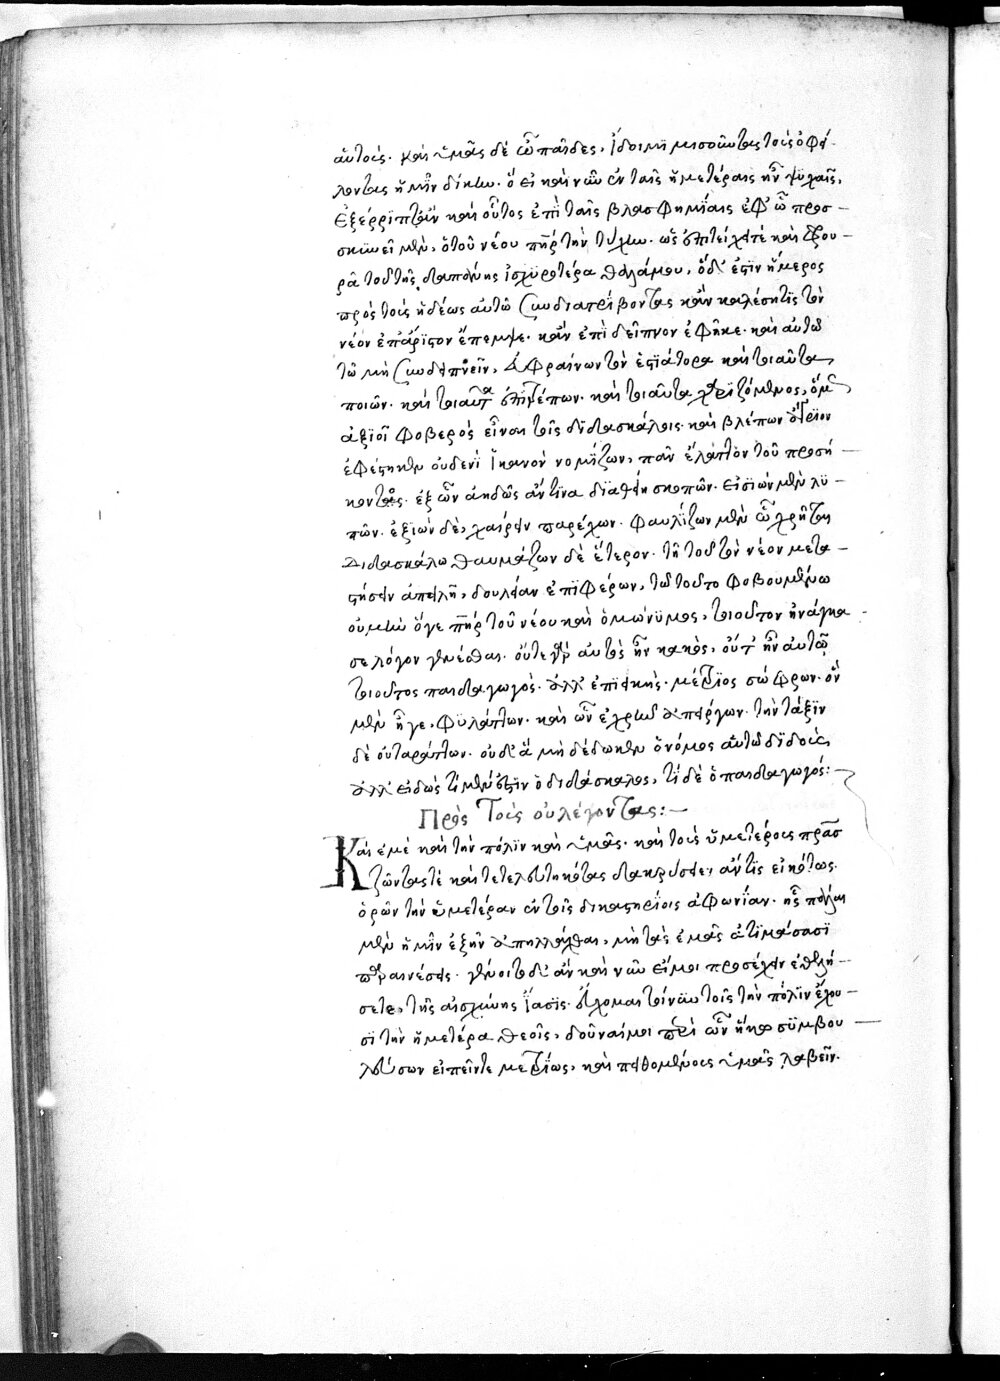 αὐτοῖς. καὶ ὑμᾶς δὲ ὦ παῖδες, ἴδοιμι μισοῦντας τοὺς ὀφεί-
λοντας ἡμῖν δίκην. ὃ εἰ καὶ νῦν ἐν ταῖς ἡμετέραις ἦν ψυχαῖς,
ἐξέρριπτο ἂν καὶ οὗτος ἐπὶ ταῖς βλασφημίαις ἐφ' ᾧ προσ-
κυνεῖ μὲν, ὁ τοῦ νέου πατὴρ τὴν τύχην.
ρὰ τοῦ τῆς δεσποίνης ἰσχυρότερα θαλάμου, ὁ δ' ἐστὶν ἥμερος
πρὸς τοὺς ἡδέως αὐτῷ συνδιατρίβοντας κἂν καλέσῃ τις τὸν
νέον ἐπ' ἄριστον ἔπεμψε. κἂν ἐπὶ δεῖπνον ἐφῆκε. καὶ αὐτῷ
τῷ μὴ συνδειπνεῖν, εὐφραίνων τὸν ἑστιάτορα καὶ τοιαῦτα
ποιῶν. καὶ τοιαῦτα ἐπιτρέπων. καὶ τοιαῦτα χαριζόμενος, ὅμως
ἀξιοῖ φοβερὸς εἶναι τοῖς διδασκάλοις. καὶ βλέπων
ἐφέστηκεν οὐδενὶ ἱκανὸν νομίζων, πᾶν ἔλαττον τοῦ προσή-
κοντος. ἐξ ὧν ἀηδῶς ἄν τινα διαθείη σκοπῶν. εἰσιὼν μὲν λυ-
πῶν. ἐξιὼν δὲ, χαίρειν παρέχων. φαυλίζων μὲν ᾧ χρῆται
διδασκάλῳ θαυμάζων δὲ ἕτερον. τῇ τοῦ τὸν νέον μετα-
στήσειν ἀπειλῇ, δουλείαν ἐπιφέρων, τῷ τοῦτο φοβουμένῳ
οὐ μὴν ὅγε πατὴρ τοῦ νέου καὶ ὁμώνυμος, τοιοῦτον ἠνάγκα-
σε λόγον γενέσθαι. οὔτε γὰρ αὐτὸς ἦν κακὸς, οὔτ' ἦν αὐτῷ
τοιοῦτος παιδαγωγός. ἀλλ' ἐπιεικής. μέτριος σώφρων. ὃν
μὲν ἦγε, φυλάττων. καὶ ὧν ἐχρῆν ἀπείργων. τὴν τάξιν
δὲ οὐ ταράττων. οὐδ' ἃ μὴ δέδωκεν ὁ νόμος αὐτῷ διδούς,
ἀλλ' εἰδὼς τί μέν ἐστιν ὁ διδάσκαλος, τί δὲ ὁ παιδαγωγός:-
Πρὸς Τοὺς οὐ λέγοντας:-
Καὶ ἐμὲ καὶ τὴν πόλιν καὶ ὑμᾶς. καὶ τοὺς ὑμετέρους πατέρας
ζῶντάς τε καὶ τετελευτηκότας δακρύσειεν ἄν τις εἰκότως.
ὁρῶν τὴν ὑμετέραν ἐν τοῖς δικαστηρίοις ἀφωνίαν. ἧς πάλαι
μὲν ἡμῖν ἐξῆν ἀπηλλάχθαι, μὴ τὰς ἐμὰς ἀτιμάσασι
παραινέσεις. γένοιτο δ' ἂν καὶ νῦν εἴ μοι προσέχειν ἐθελή-
σετε, τῆς αἰσχύνης ἴασις. εὔχομαι τοίνυν τοῖς τὴν πόλιν ἔχου-
σι τὴν ἡμετέραν θεοῖς, δοῦναί μοι περὶ ὧν ἥκω συμβου-
λεύσων εἰπεῖν τε μετρίως, καὶ πειθομένους ὑμᾶς λαβεῖν.